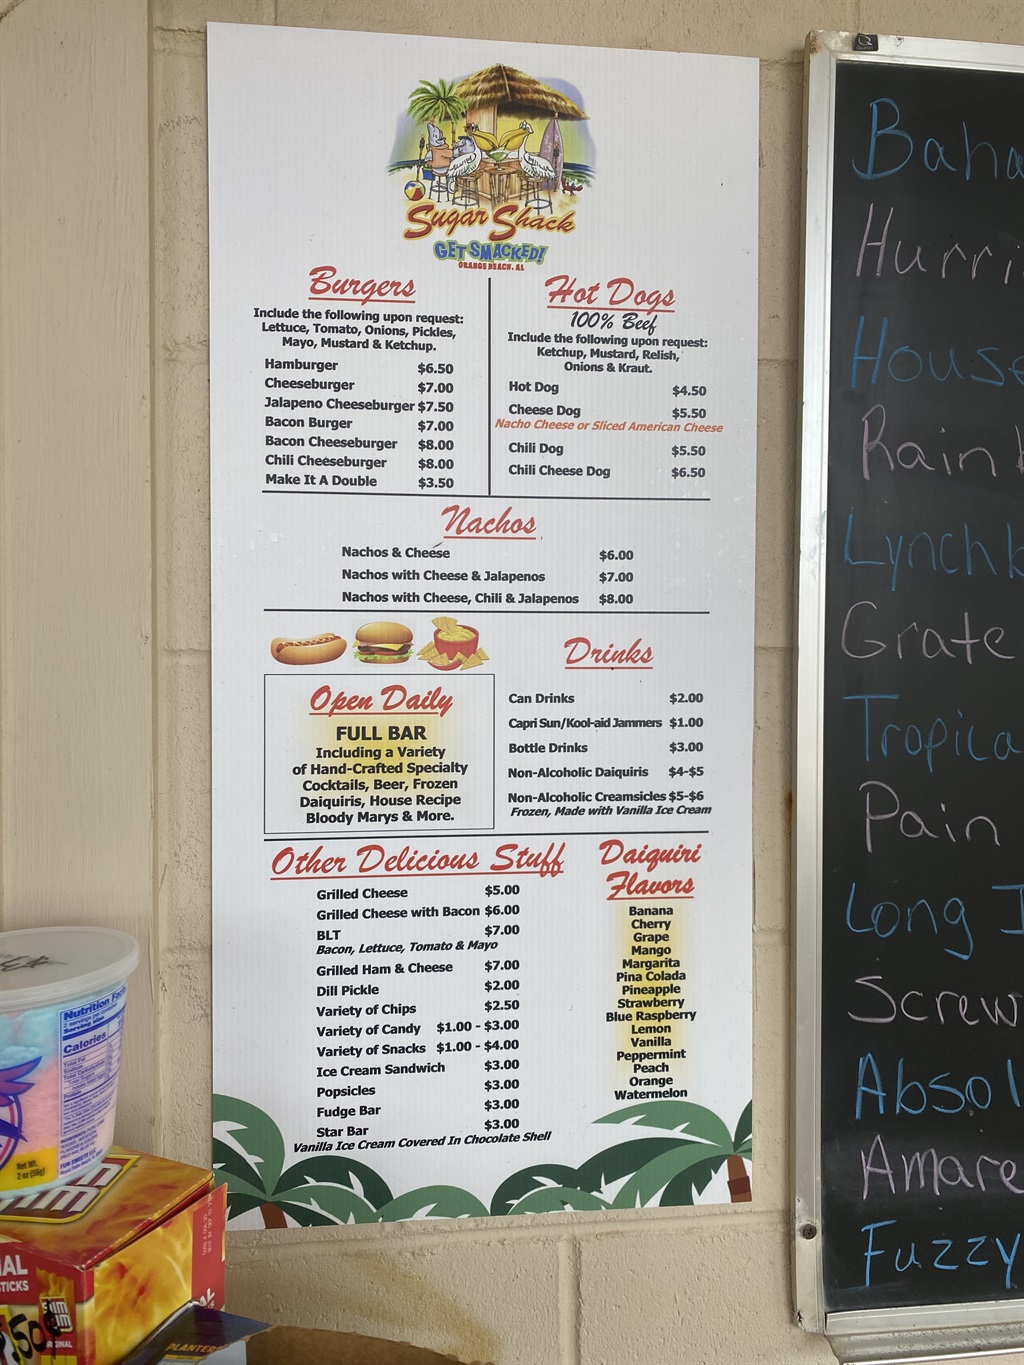 Sugar Shack
GET SMACKED!
ORANGE BEACH, AL
Burgers
Include the following upon request:
Lettuce, Tomato, Onions, Pickles,
Mayo, Mustard & Ketchup.
Hamburger $6.50
Cheeseburger $7.00
Jalapeno Cheeseburger $7.50
Bacon Burger $7.00
Bacon Cheeseburger $8.00
Chili Cheeseburger $8.00
Make It A Double $3.50
Hot Dogs
100% Beef
Include the following upon request:
Ketchup, Mustard, Relish,
Onions & Kraut.
Hot Dog $4.50
Cheese Dog $5.50
Nacho Cheese or Sliced American Cheese
Chili Dog $5.50
Chili Cheese Dog $6.50
Nachos
Nachos & Cheese $6.00
Nachos with Cheese & Jalapenos $7.00
Nachos with Cheese, Chili & Jalapenos $8.00
Open Daily
FULL BAR
Including a Variety
of Hand-Crafted Specialty
Cocktails, Beer, Frozen
Daiquiris, House Recipe
Bloody Marys & More.
Drinks
Can Drinks $2.00
Capri Sun/Kool-aid Jammers $1.00
Bottle Drinks $3.00
Non-Alcoholic Daiquiris $4-$5
Non-Alcoholic Creamsicles $5-$6
Frozen, Made with Vanilla Ice Cream
Other Delicious Stuff
Grilled Cheese $5.00
Grilled Cheese with Bacon $6.00
BLT $7.00
Bacon, Lettuce, Tomato & Mayo
Grilled Ham & Cheese $7.00
Dill Pickle $2.00
Variety of Chips $2.50
Variety of Candy $1.00 - $3.00
Variety of Snacks $1.00 - $4.00
Ice Cream Sandwich $3.00
Popsicles $3.00
Fudge Bar $3.00
Star Bar $3.00
Vanilla Ice Cream Covered In Chocolate Shell
Daiquiri
Flavors
Banana
Cherry
Grape
Mango
Margarita
Pina Colada
Pineapple
Strawberry
Blue Raspberry
Lemon
Vanilla
Peppermint
Peach
Orange
Watermelon
Baha
Hurri
House
Rain
Lynch
Grate
Tropica
Pain
Long I
Screw
Absol
Amare
Fuzzy
Nutrition Fac
Serving size
Calories
Net Wt.
2 oz (56g)
AL
TICKS
.50¢
PLANTER